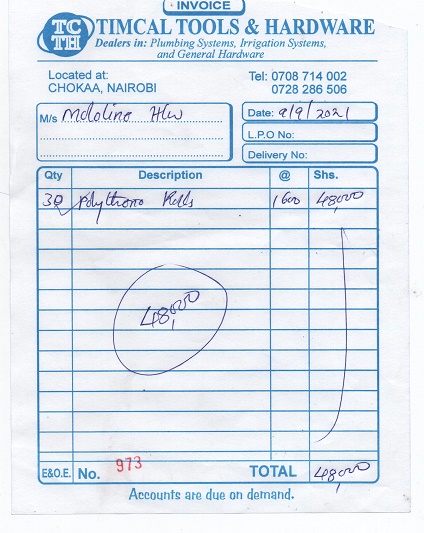 INVOICE
TC
TH
TIMCAL TOOLS & HARDWARE
Dealers in: Plumbing Systems, Irrigation Systems,
and General Hardware
Located at:
CHOKAA, NAIROBI
Tel: 0708 714 002
0728 286 506
M/s Mdolino H/w
Date: 9/9/2021
L.P.O No:
Delivery No:
Qty Description @ Shs.
30 Polythene Rolls 1600 48,000
48,000
E&O.E. No. 973 TOTAL 48,000
Accounts are due on demand.